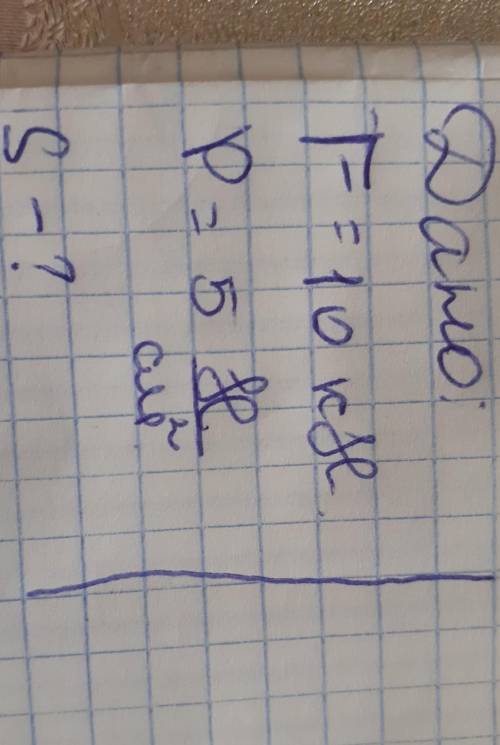 Дано:
F = 10 кН
p = 5 Н/см²
S - ?